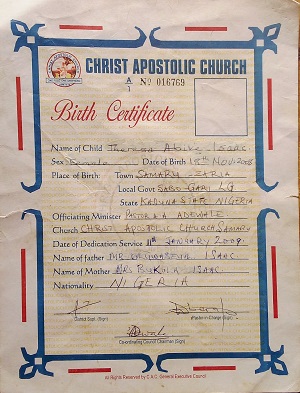 CHRIST APOSTOLIC CHURCH
A/1 No 016769
Birth Certificate
Name of Child Theresa Abike Isaac
Sex Female Date of Birth 18th Nov. 2008
Place of Birth: Town SAMARU - ZARIA
Local Govt SABO GARI LG
State KADUNA STATE NIGERIA
Officiating Minister PASTOR A ADEWALE
Church CHRIST APOSTOLIC CHURCH SAMARU
Date of Dedication Service 11th JANUARY 2009
Name of father MR ISAAC
Name of Mother MRS BUKOLA ISAAC
Nationality NIGERIA
District Supt. (Sign) Pastor in Charge (Sign)
Co-ordinating Council Chairman (Sign)
All Rights Reserved by C.A.C. General Executive Council